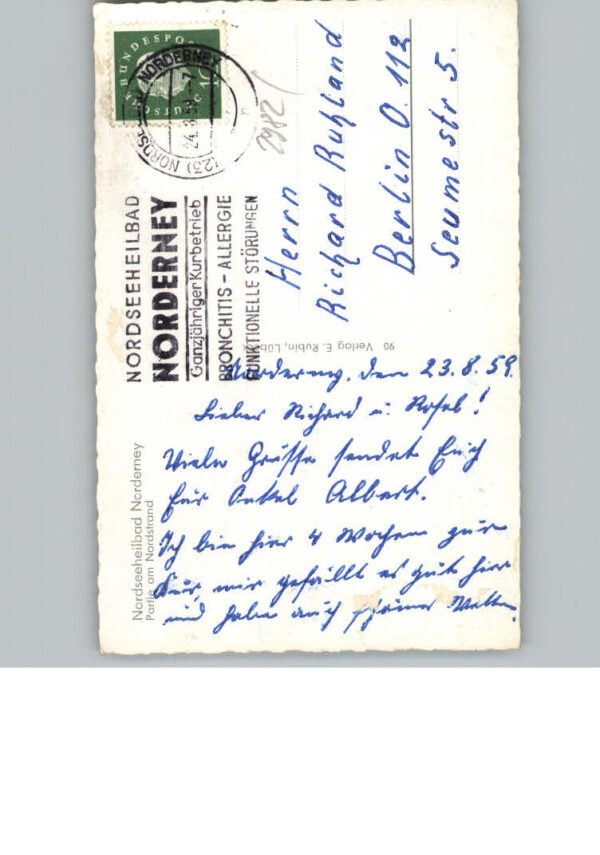 BUNDESPOST
10
NORDERNEY
(23) NORDSEE
24.8.59
2982
NORDSEEHEILBAD
NORDERNEY
Ganzjähriger Kurbetrieb
BRONCHITIS – ALLERGIE
FUNKTIONELLE STÖRUNGEN
Herrn
Richard Ruhland
Berlin O. 112
Seumestr 5.
90 Verlag E. Rubin, Lübeck
Nordseeheilbad Norderney
Partie am Nordstrand
Norderney, den 23.8.59.
Lieber Richard u. Rosel!
Viele Grüsse sendet Euch
Eur Onkel Albert.
Ich bin hier 4 Wochen zur
Kur, mir gefällt es gut hier
und habe auch schönes Wetter.